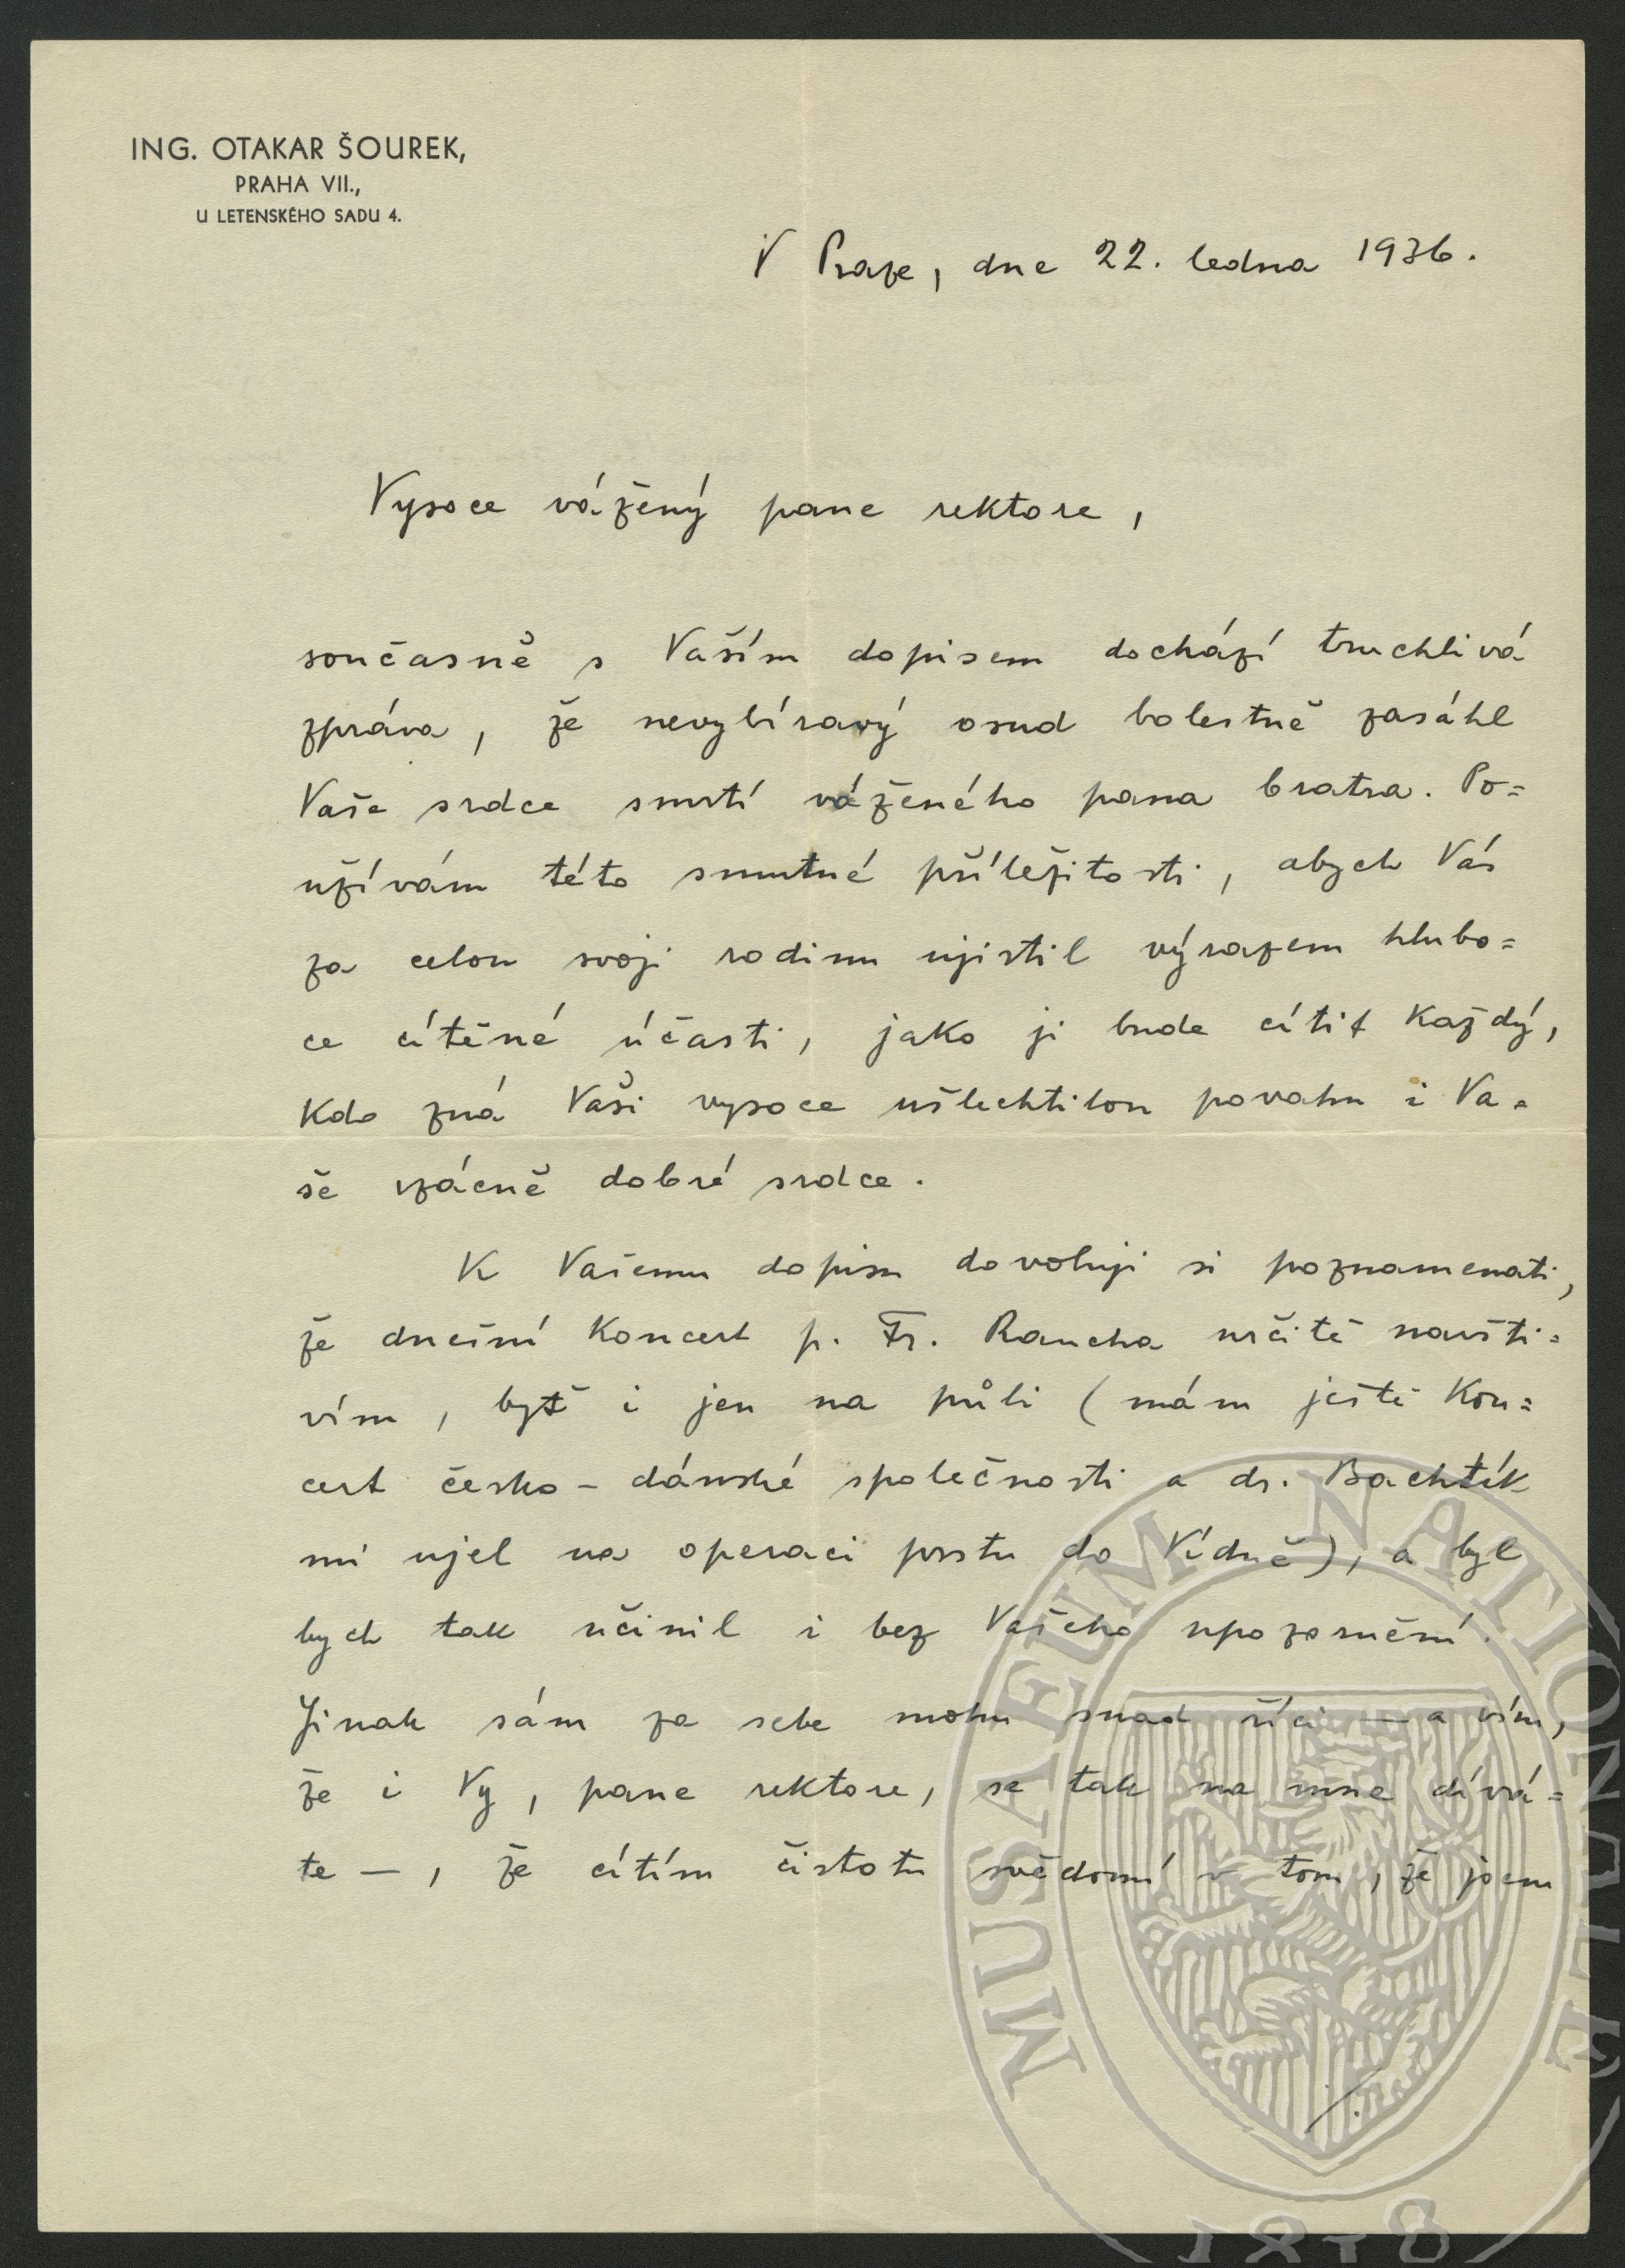 ING. OTAKAR ŠOUREK,
PRAHA VII.,
U LETENSKÉHO SADU 4.
V Praze, dne 22. ledna 1936.
Vysoce vážený pane rektore,
současně s Vaším dopisem dochází truchlivá
zpráva, že nevybíravý osud bolestně zasáhl
Vaše srdce smrtí váženého pana bratra. Po=
užívám této smutné příležitosti, abych Vás
za celou svoji rodinu ujistil výrazem hlubo=
ce cítěné účasti, jako ji bude cítit každý,
kdo zná Vaši vysoce ušlechtilou povahu i Va=
še vzácně dobré srdce.
K Vašemu dopisu dovoluji si poznamenati,
že dnešní koncert p. Fr. Raucha určitě navští=
vím, byť i jen na půli (mám ještě kon=
cert česko-dánské společnosti a dr. Bachtík
mi ujel na operaci prstu do Vídně), a byl
bych tak učinil i bez Vašeho upozornění.
Jinak sám za sebe mohu snad říci — a vím,
že i Vy, pane rektore, se tak na mne dívá=
te —, že cítím čistotu svědomí v tom, že jsem
./.
MUSAEUM NATIONALE
1818